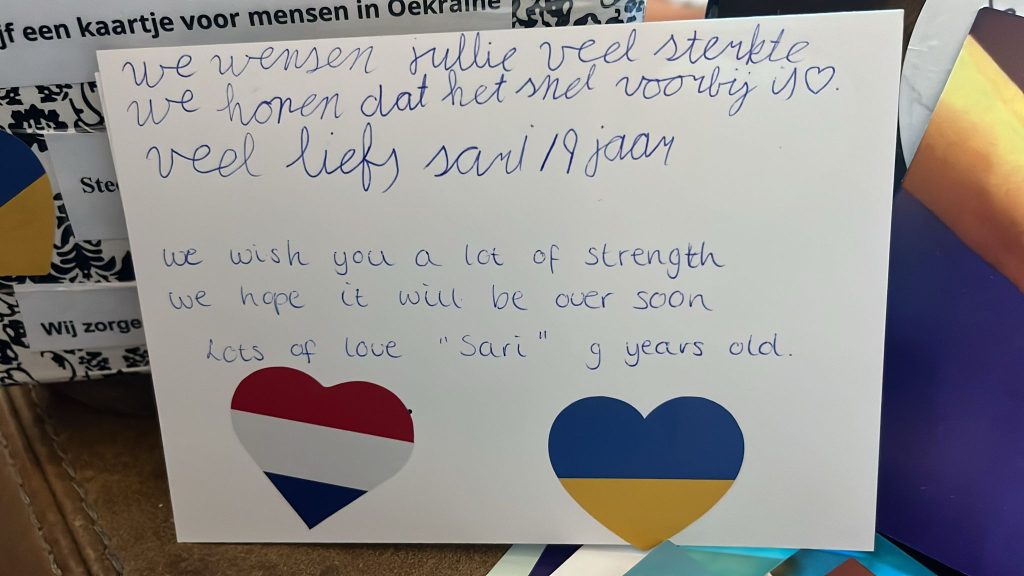 jf een kaartje voor mensen in Oekraïne
we wensen jullie veel sterkte
we horen dat het snel voorbij is♡.
veel liefs sari 19 jaar
Stee
we wish you a lot of strength
we hope it will be over soon
Wij zorge
Lots of love "Sari" 9 years old.